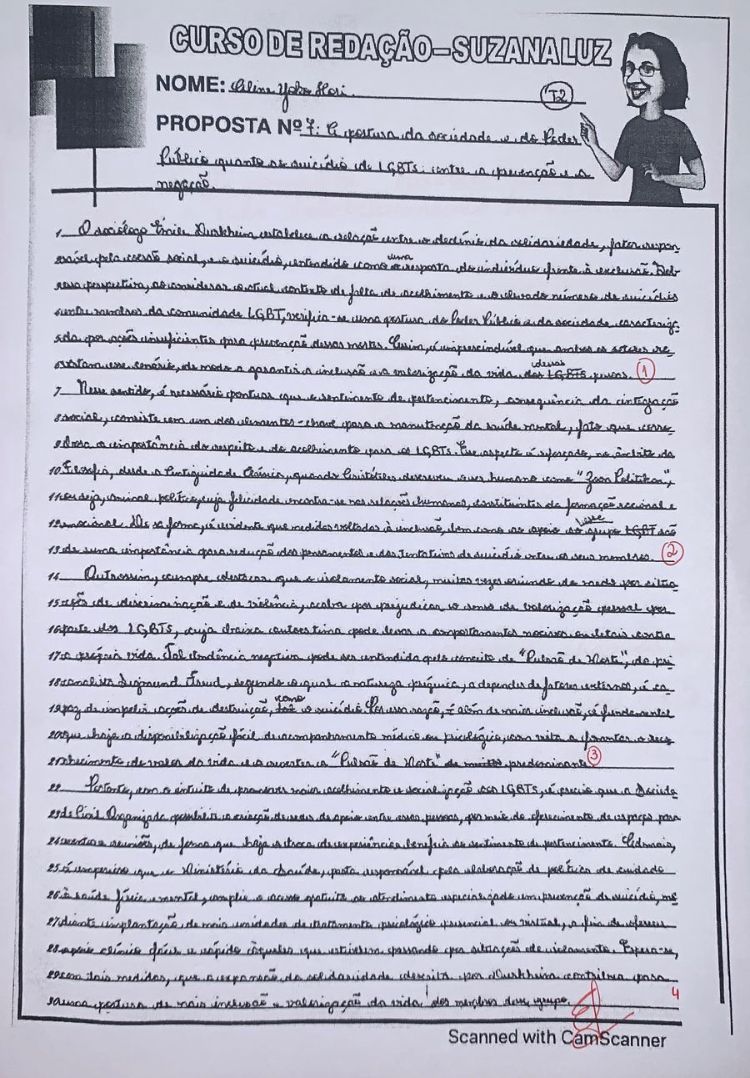 CURSO DE REDAÇÃO-SUZANA LUZ
NOME: Celine Yoko Hori
T2
PROPOSTA Nº 7: A postura da sociedade e do Poder
Público quanto ao suicídio de LGBTS: entre a prevenção e a
negação.
1 O sociólogo Émile Durkheim estabelece a relação entre o declínio da solidariedade, fator respon-
sável pela coesão social, e o suicídio, entendido como uma resposta do indivíduo frente à exclusão. Sob
essa perspectiva, ao considerar o atual contexto de falta de acolhimento e o elevado número de suicídios
entre membros da comunidade LGBT, verifica-se uma postura do Poder Público e da sociedade caracteriza-
da por ações insuficientes para prevenção dessas mortes. Assim, é imprescindível que ambos os setores re-
vertam esse cenário, de modo a garantir a inclusão e a valorização da vida dessas pessoas. 1
7 Nesse sentido, é necessário pontuar que o sentimento de pertencimento, consequência da integração
8 social, consiste em um dos elementos-chave para a manutenção da saúde mental, fato que corro-
9 bora a importância do respeito e do acolhimento para os LGBTs. Esse aspecto é reforçado, no âmbito da
10 Filosofia, desde a Antiguidade Clássica, quando Aristóteles descreveu o ser humano como "Zoon Politikon",
11 ou seja, animal político, cuja felicidade encontra-se nas relações humanas, constituintes da formação racional e
12 emocional. Dessa forma, é evidente que medidas voltadas à inclusão, bem como ao apoio ao grupo LGBT são
13 de suma importância para redução dos pensamentos e das tentativas de suicídio entre os seus membros. 2
14 Outrossim, cumpre destacar que o isolamento social, muitas vezes oriundo do medo por situa-
15 ções de discriminação e de violência, acaba por prejudicar o senso de valorização pessoal por
16 parte dos LGBTS, cuja baixa autoestima pode levar a comportamentos nocivos ou letais contra
17 a própria vida. Tal tendência negativa pode ser entendida pelo conceito de "Pulsão de Morte", do psi-
18 canalista Sigmund Freud, segundo o qual a natureza psíquica, a depender de fatores externos, é ca-
19 paz de impelir ações de destruição, como o suicídio. Por essa razão, além de mais inclusão, é fundamental
20 que haja a disponibilização fácil de acompanhamento médico ou psicológico, com vista a fomentar o reco-
21 nhecimento do valor da vida e a reverter a "Pulsão de Morte" predominante. 3
22 Portanto, com o intuito de promover maior acolhimento e socialização aos LGBTS, é preciso que a Socieda-
23 de Civil Organizada possibilite a criação de redes de apoio entre essas pessoas, por meio do oferecimento de espaços para
24 eventos e reuniões, de forma que haja a troca de experiências benéfica ao sentimento de pertencimento. Ademais,
25 é imperioso que o Ministério da Saúde, pasta responsável pela elaboração de política de cuidado
26 à saúde física e mental, amplie o acesso gratuito ao atendimento especializado em prevenção do suicídio, me-
27 diante implantação de mais unidades de tratamento psicológico presencial ou virtual, a fim de oferecer
28 apoio clínico fácil e rápido àqueles que estiverem passando por situação de isolamento. Espera-se,
29 com tais medidas, que a expansão da solidariedade descrita por Durkheim contribua para
30 uma postura de mais inclusão e valorização da vida dos membros desse grupo. 4
Scanned with CamScanner